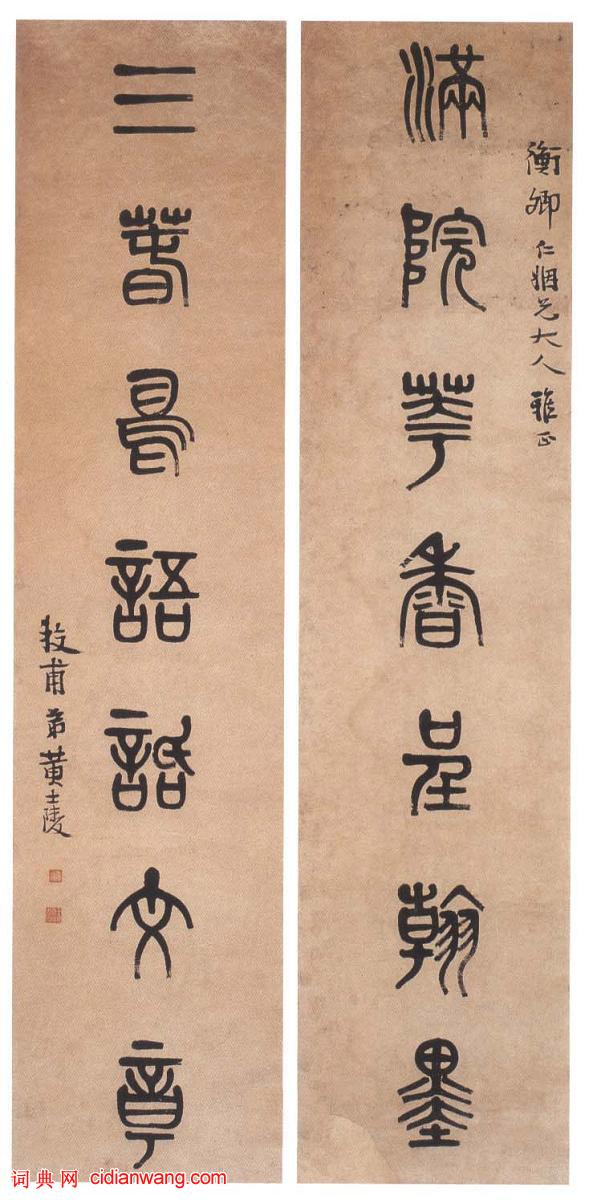 衡卿仁姻兄大人雅正
滿院華香呈翰墨
三春語話文章
牧甫弟黄士陵
词典网 cidianwang.com